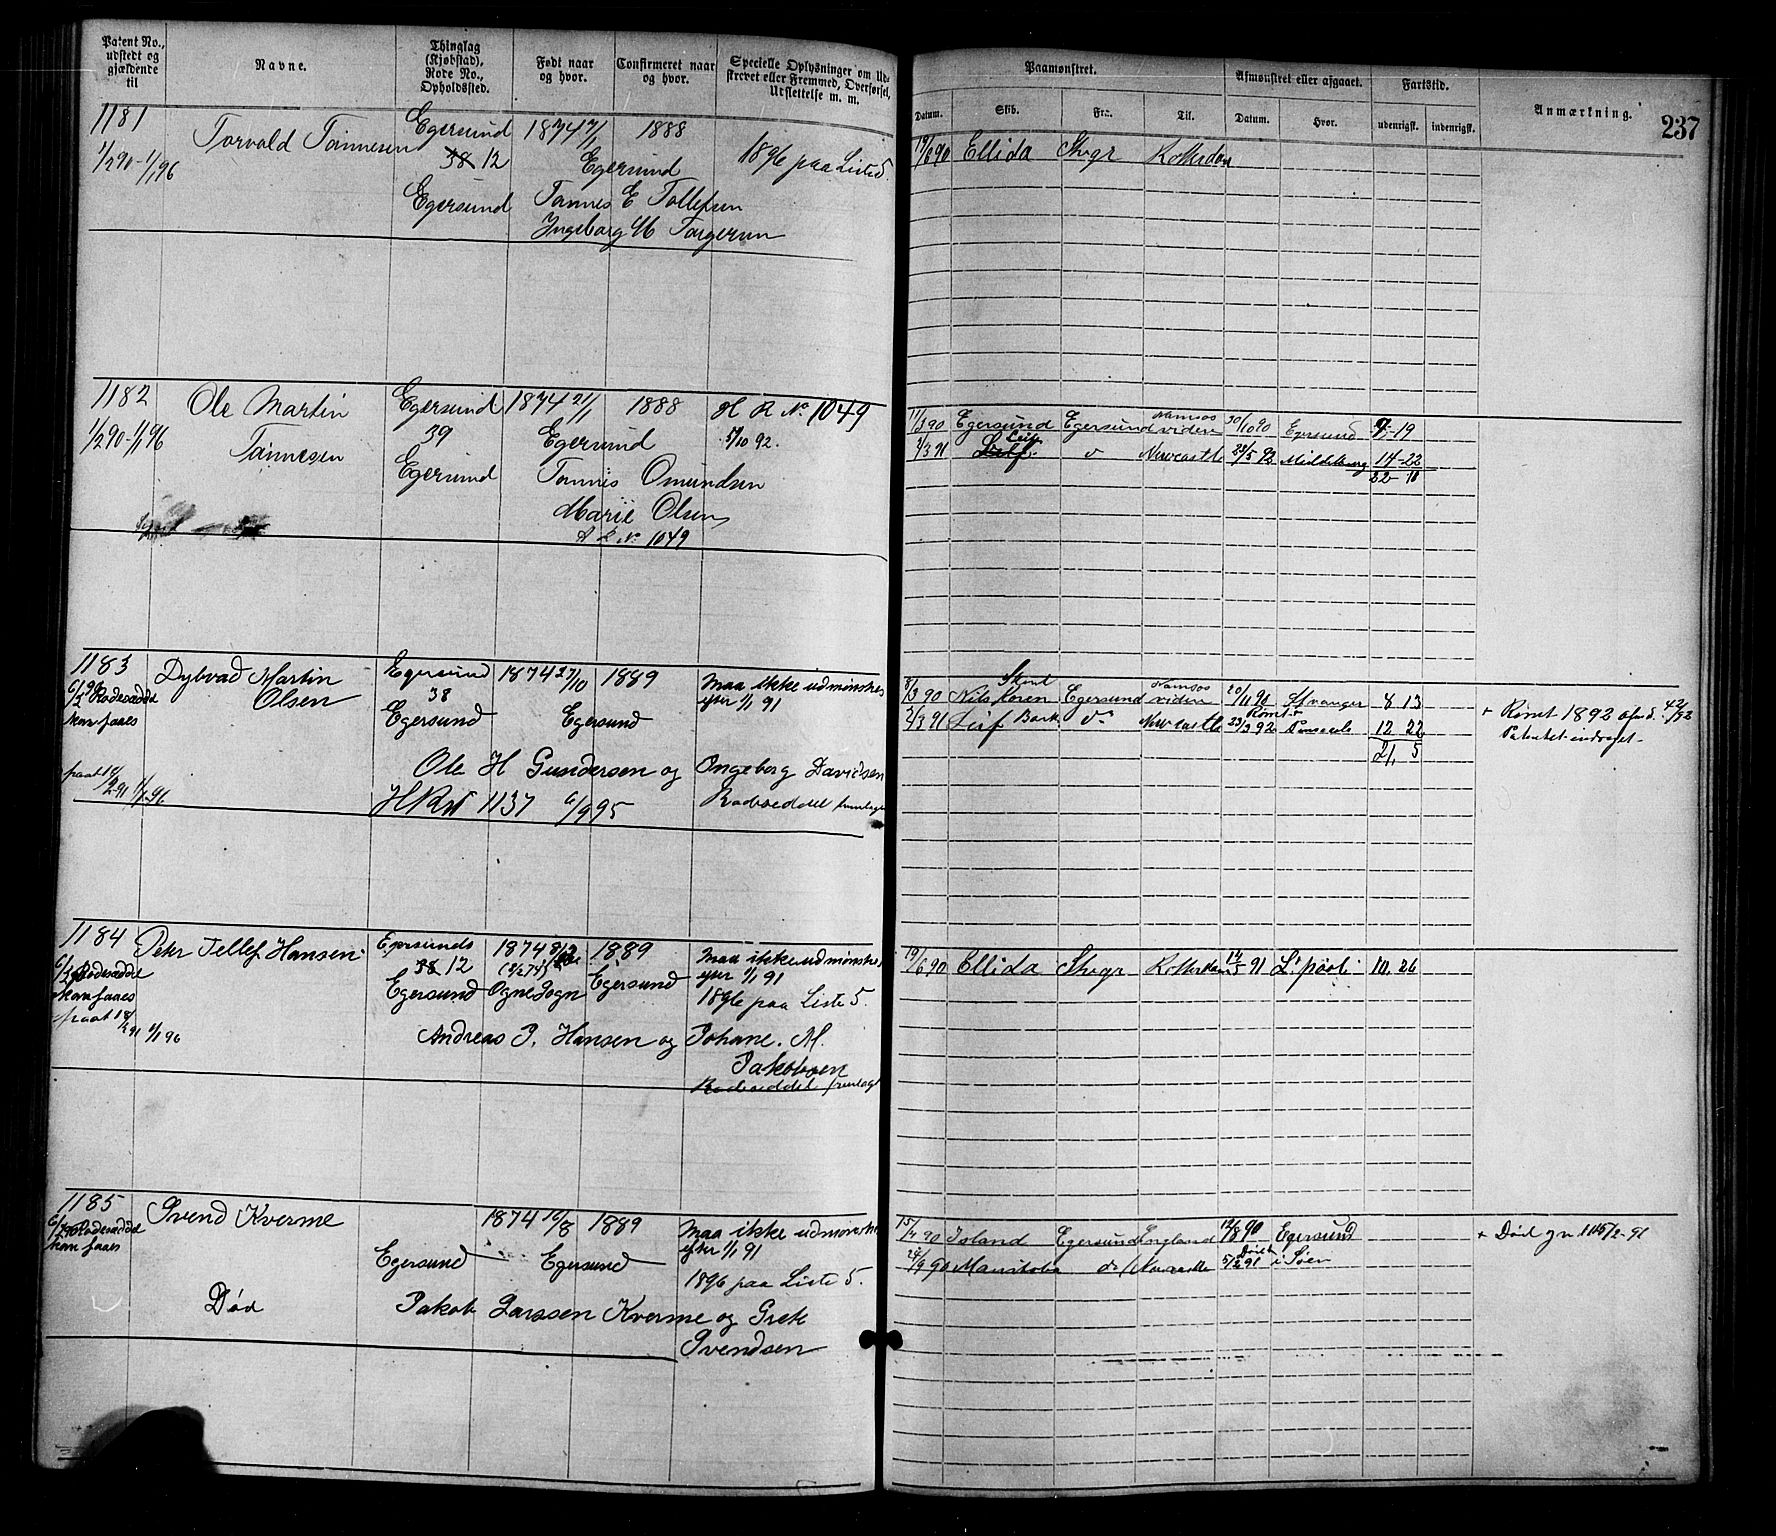 Patent No., udstedt og gjældende til
Navne.
Thinglag (Kjøbstad), Rode No., Opholdssted.
Født naar og hvor.
Confirmeret naar og hvor.
Specielle Oplysninger om Udskrevet eller Fremmed, Overførsel, Udslettelse m. m.
Paamønstret.
Datum.
Skib.
Fra.
Til.
Afmønstret eller afgaaet.
Datum.
Hvor.
Fartstid.
udenrigsk.
indenrigsk.
Anmærkning.
237
1181
1/2 90 - 1/1 96
Torvald Tønnesen
Egersund
38 12
Egersund
1874 7/1
1888
Egersund
1896 paa Liste 5.
Tønnes E Tollefsen
Ingeborg M Torgersen
19/6 90 Ellida Stvgr Rotterdam
1182
1/2 90 - 1/1 96
Ole Martin
Tønnesen
Egersund
39
Egersund
1874 21/1
1888
Egersund
H R No 1049
5/10 92.
Tønnes Omundsen
Marie Olsen
A R No 1049
11/3 90 Egersund Egersund Namsos viden 30/10 90 Egersund 7-19
2/3 91 Leif d Newcastle 23/5 92 Middelburg 14-22
22-10
1183
6/2 90 Rodeseddel
kan faaes
Dybvad Martin
Olsen
Egersund
38
Egersund
1874 27/10
1889
Egersund
maa ikke udmønstres
efter 1/1 91
Ole H Gundersen og Ingeborg Davidsen
HRN 1137 6/9 95
Rodeseddel fremlagt
8/3 90 Skont Nils Koren Egersund Namsos viden 20/11 90 Stvanger 8 13
2/3 91 Leif Bark d Newcastle 23/3 92 Rømt Pensacola 12 22
21, 5
+ Rømt 1892
Patentet inddraget
1184
6/2 90 Rodeseddel
kan faaes
paat 18/2 91 1/1 96
Peter Tellef Hansen
Egersunds
38 12
Egersund
1874
Ogne Sogn
1889
Egersund
maa ikke udmønstres
efter 1/1 91
1896 paa Liste 5.
Andreas P. Hansen og Johane. M.
Jakobsen
Rodeseddel fremlagt
19/6 90 Ellida Stvgr Rotterdam 14/5 91 L'pool 10. 26
1185
6/2 90 Rodeseddel
kan faaes
Svend Kverme
Egersund
1874 16/8
1889
Egersund
maa ikke udmønstres
efter 1/1 91
1896 paa Liste 5.
Død
Jakob Larssen Kverme og Grete
Svendsen
15/4 90 Island Egersund England 12/8 90 Egersund
24/9 90 Manitoba d Newcastle 5/2 91 Død i Søen
+ Død